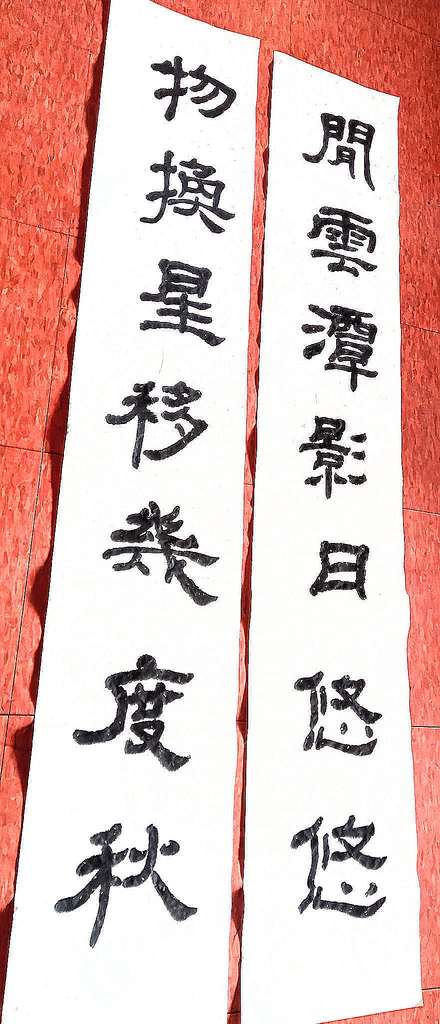 閒雲潭影日悠悠
物換星移幾度秋